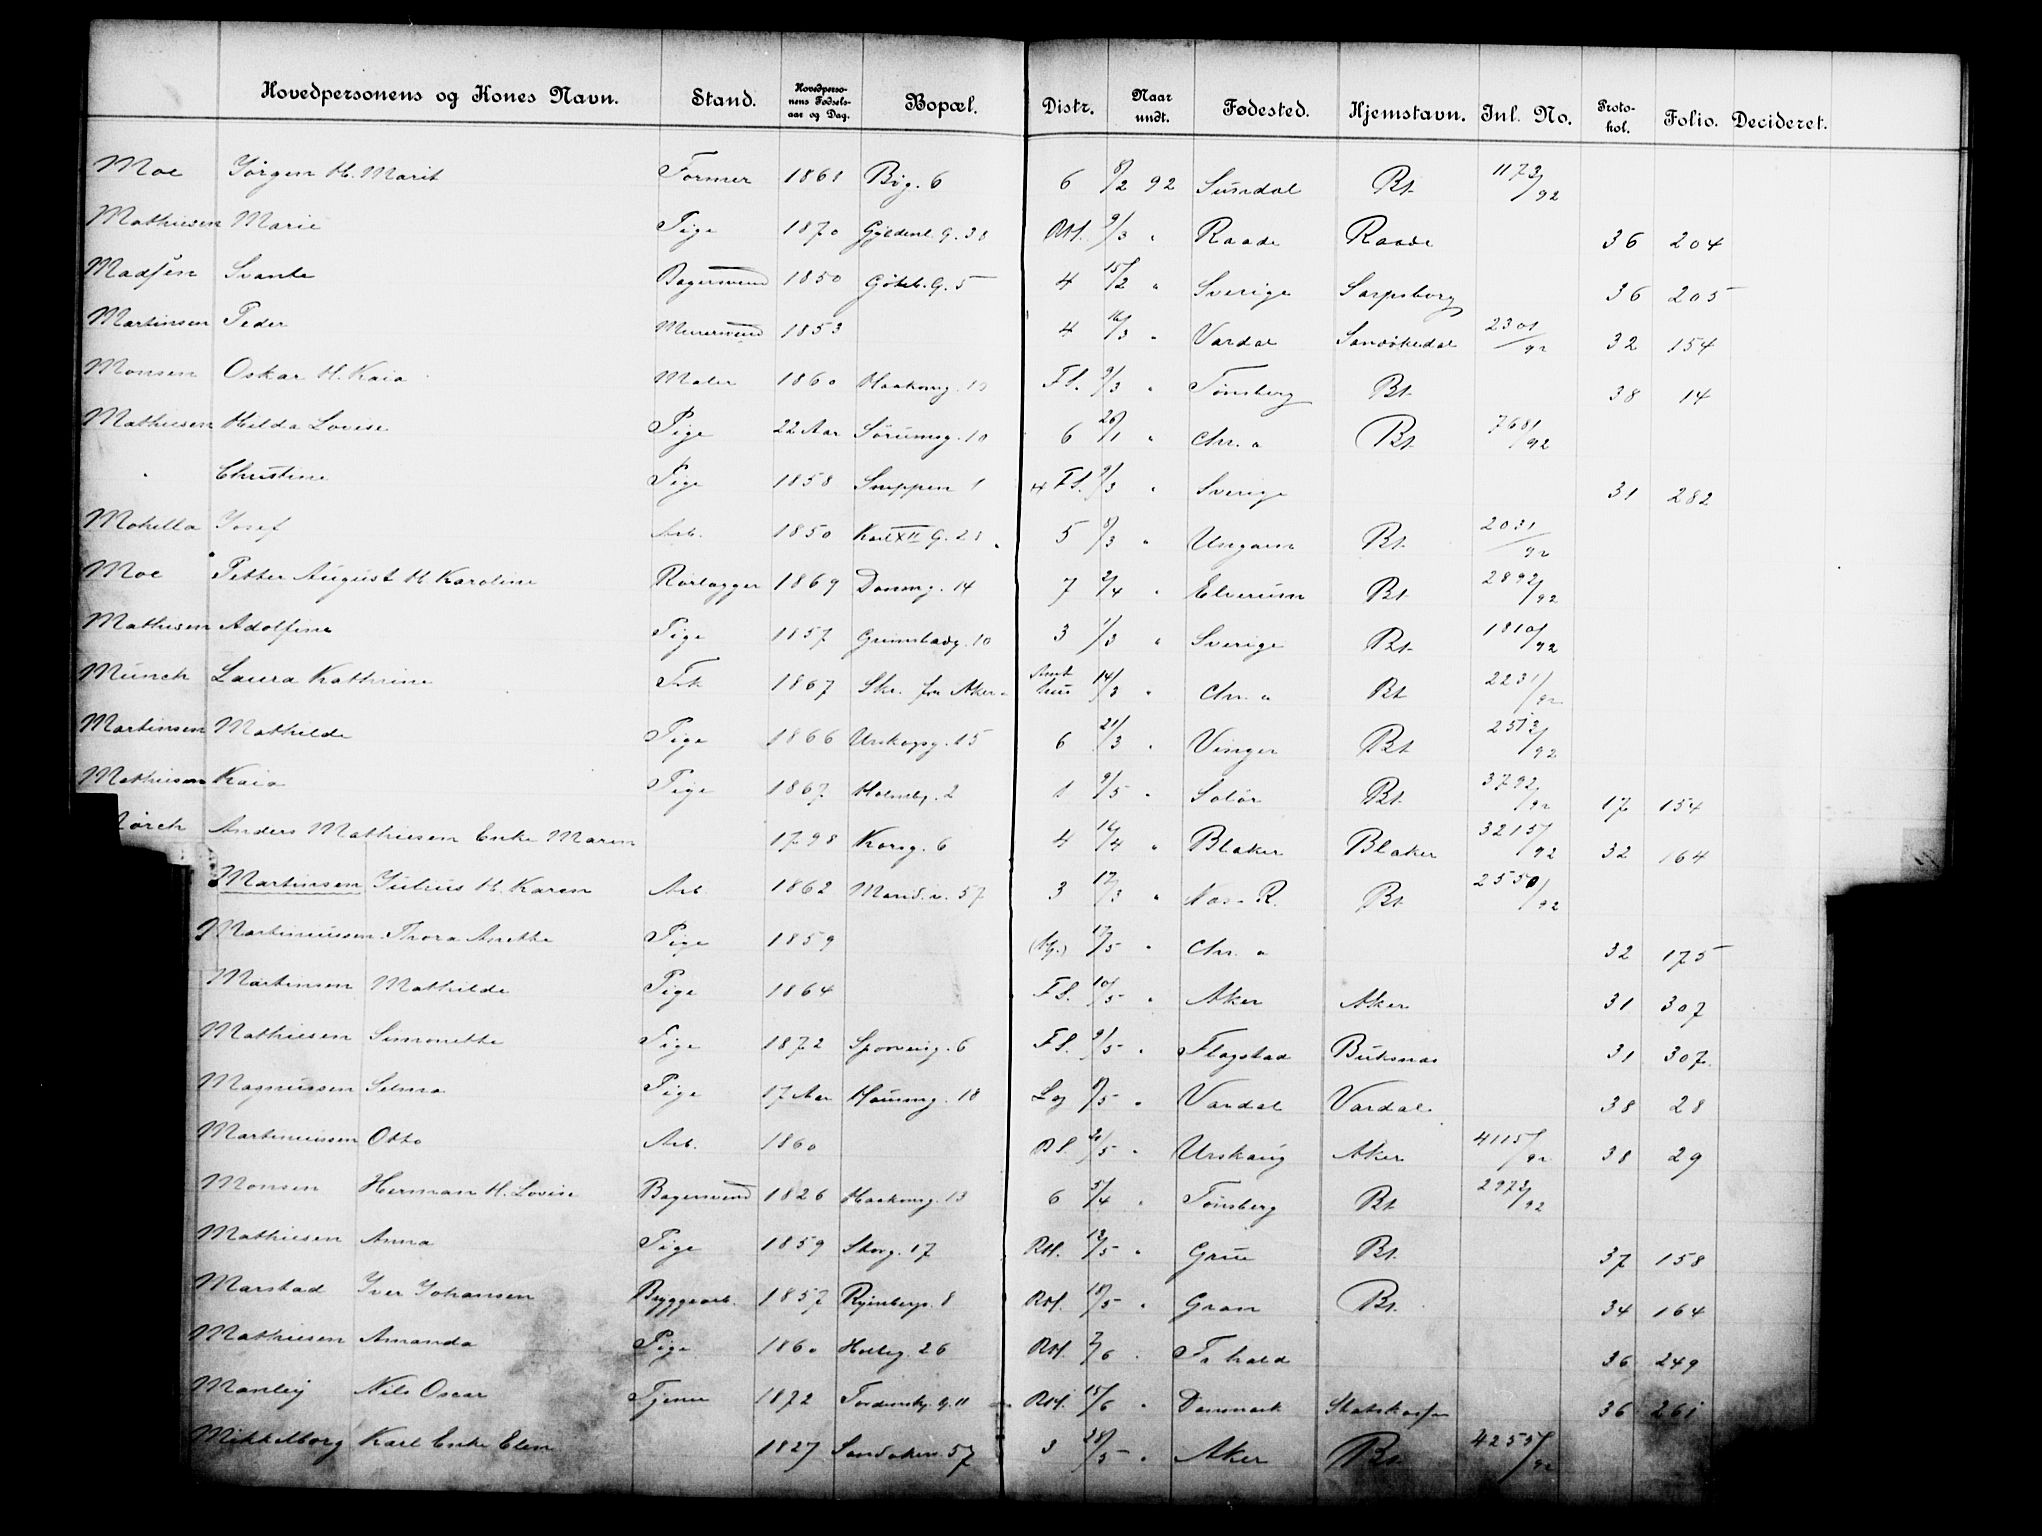 Hovedpersonens og Kones Navn. Stand. Hovedpersonens Fødselsaar og Dag. Bopæl. Distr. Naar undt. Fødested. Hjemstavn. Inl. No. Protokol. Folio. Decideret.
Moe Jörgen H. Marit Former 1861 Bög. 6 6 8/2 92 Sundal Bt. 1173/92
Mathiesen Marie Pige 1870 Gyldenl. G. 38 RH. 9/3 " Raade Raade 36 204
Madsen Svante Bagersvend 1850 Göteb. G. 5 4 15/2 " Sverige Sarpsborg 36 205
Martinsen Peder Murersvend 1853 4 16/3 " Vardal Sandökedal 2301/92 32 154
Monsen Oskar H. Kaia Maler 1860 Haakonsg. 13 FS. 9/3 " Tönsberg Bt. 38 14
Mathiesen Hilda Lovise Pige 22 Aar Sörumsg. 10 6 26/1 " Chr. a Bt. 768/92
" Christine Pige 1858 Snippen 1 4 FS. 9/3 " Sverige 31 282
Mokella Josef Arb. 1850 Karl XII G. 23 5 8/3 " Ungarn Bt. 2031/92
Moe Petter August H. Karoline Rörlægger 1869 Donsg. 14 7 2/4 " Elverum Bt. 2892/92
Mathisen Adolfine Pige 1857 Grimstadg. 10 3 1/3 " Sverige Bt. 1810/92
Münch Laura Kathrine Frk 1867 Skr. fra Aker 14/3 " Chr. a Bt. 2231/92
Martinsen Mathilde Pige 1866 Urskogsg. 15 6 21/3 " Vinger Bt. 2513/92
Mathiesen Kaia Pige 1867 Holmsg. 2 1 9/5 " Solör Bt. 3792/92 17 154
Mörch Anders Mathiesen Enke Maren 1798 Korsg. 6 4 16/4 " Blaker Blaker 3215/92 32 164
Martinsen Julius H. Karen Arb. 1862 Marid. v. 57 3 17/3 " Nes - R. Bt. 2550/92
Martinussen Thora Anette Pige 1859 17/5 " Chr. a 32 175
Martinsen Mathilde Pige 1864 FS. 10/5 " Aker Aker 31 307
Mathiesen Simonette Pige 1872 Sporveisg. 6 FS. 9/5 " Flagstad Buksnæs 31 307
Magnussen Selma Pige 17 Aar Hausmsg. 18 Lag 9/5 " Vardal Vardal 38 28
Martinussen Otto Arb. 1860 RS. 20/5 " Urskaug Aker 4115/92 38 29
Monsen Herman H. Lovise Bagersvend 1826 Haakonsg. 13 6 5/4 " Tönsberg Bt. 2973/92
Mathiesen Anna Pige 1859 Skovg. 17 RH. 12/5 " Grue Bt. 37 158
Marstad Iver Johansen Bryggearb. 1857 Ryenbergs. 8 RH. 18/5 " Gran Bt. 34 164
Mathiesen Amanda Pige 1860 Holbg. 26 RH. 7/6 " Fr. hald 36 249
Manley Nils Oscar Tjener 1872 Tordenskj. G. 11 RH. 15/6 " Danmark Statskassen 36 261
Mikkelborg Karl Enke Elen 1827 Sandakerv. 57 3 28/5 " Aker Bt. 4255/92